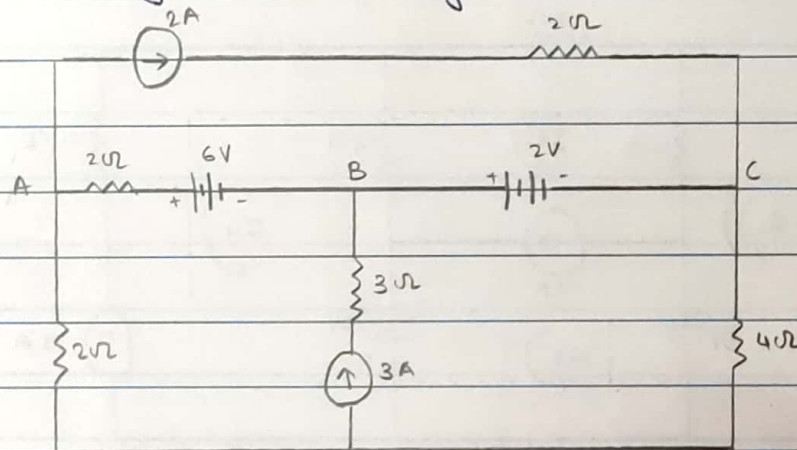 2A
2Ω
2Ω
6V
2V
A
+
-
B
+
-
C
3Ω
2Ω
3A
4Ω